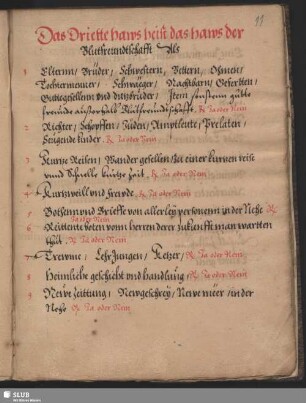 11
Das Driette haws heist das haws der
Blutfreundtschafft Als
1 Eltternn / Brüder / Schwestern / Vettern / Ohmen /
Tochtermenner / Schwäger / Nachtbarn / Gefertten /
Guttegesellenn vnd Haußfrider / Item sonstenn gutte
freunde ausserhalb Blutfreundtschafft. R. Ja oder Nein
2 Richter / Schöpffen / Juden / Amptleute / Prelaten /
Seugende kinder. R. Ja oder Nein
3 Kurtze Reisen / Wandergesellen / Zeit einer kurtzen reise
vnnd Schnelle kurtze Zeit. R. Ja oder Nein
4 Kurtzweill vnd freude. R. Ja oder Nein
5 Botten vnd Brieffe von allerley personenn in der Nehe R.
Ja oder Nein
6 Reittente boten vom herren derer zukunfft man wartten
thut. R. Ja oder Nein
7 Trewme / Lehr Jungen / Ketzer / R. Ja oder Nein
8 Heimliche geschicht vnd handlung R. Ja oder Nein
9 Newe zeittung / Newgeschrey / Newe meer / in der
Nehe R. Ja oder Nein
SLUB